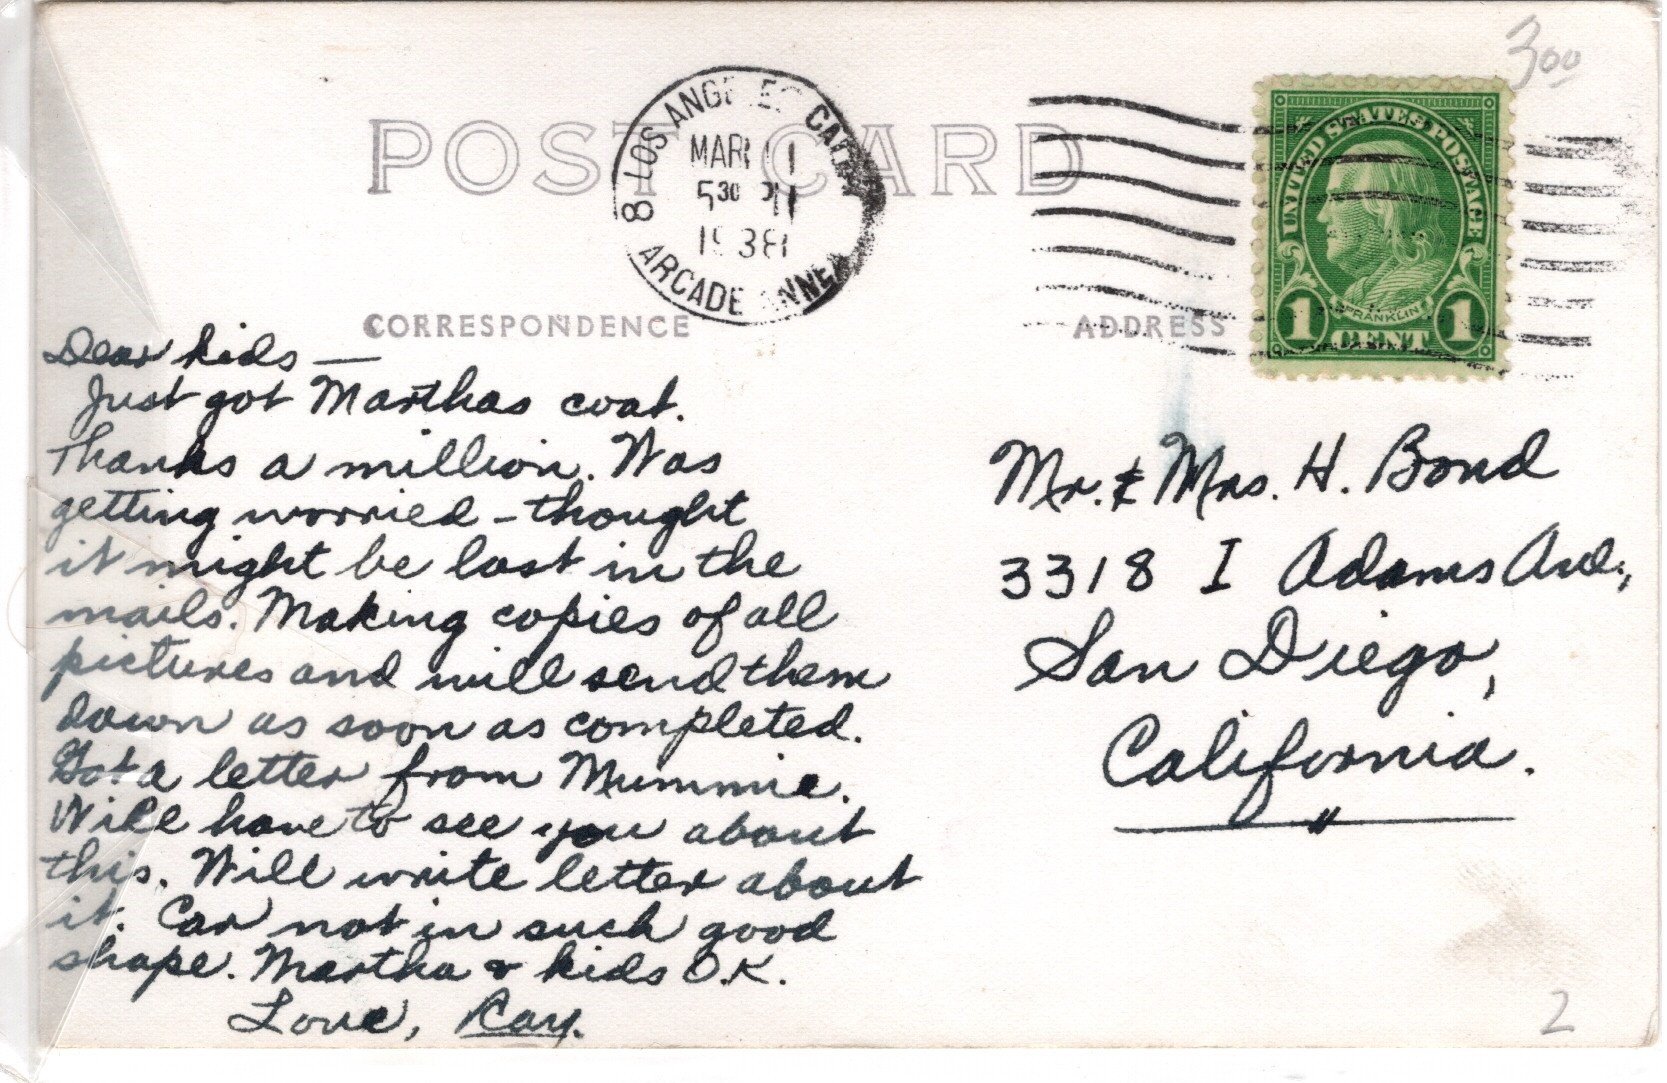 300
POST CARD
8 LOS ANGELES CALIF.
MAR 11
5 30 PM
1938
ARCADE ANNEX
UNITED STATES POSTAGE
FRANKLIN
1 CENT 1
CORRESPONDENCE
ADDRESS
Dear kids —
Just got Marthas coat.
Thanks a million. Was
getting worried – thought
it might be lost in the
mails. Making copies of all
pictures and will send them
down as soon as completed.
Got a letter from Mummie.
Will have to see you about
this. Will write letter about
it. Car not in such good
shape. Martha & kids O.K.
Love, Ray.
Mr. & Mrs. H. Bond
3318 I Adams Ave.,
San Diego,
California.
2